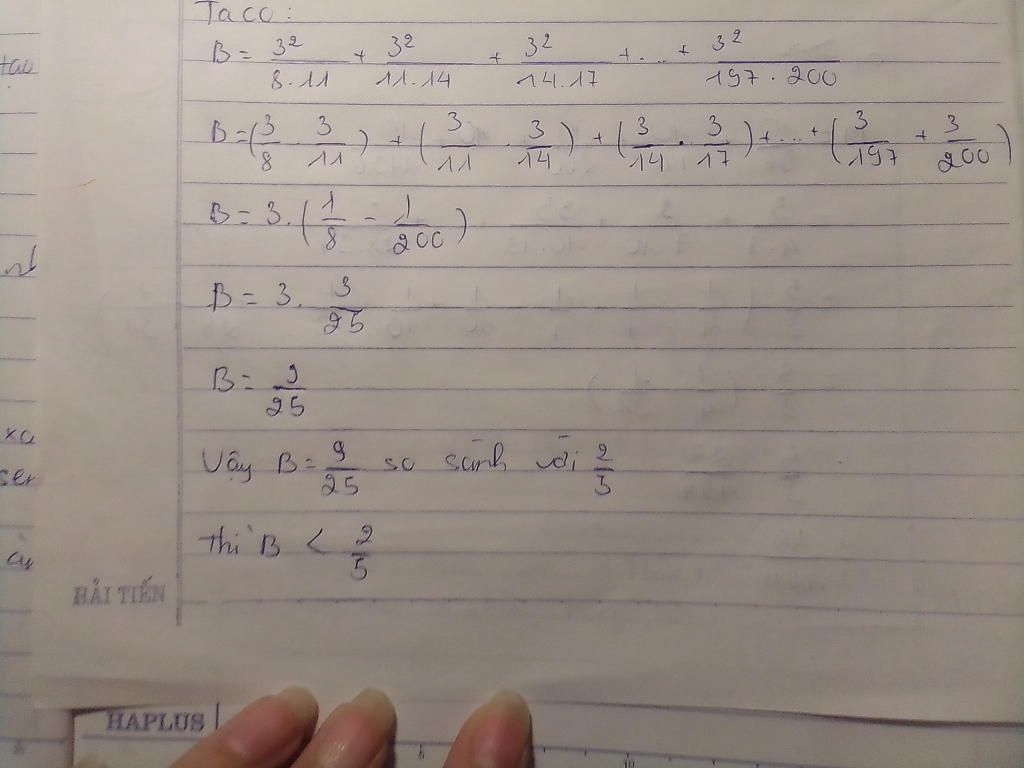 Ta có:
B = 3²/8.11 + 3²/11.14 + 3²/14.17 + ... + 3²/197.200
B = (3/8 . 3/11) + (3/11 . 3/14) + (3/14 . 3/17) + ... + (3/197 + 3/200)
B = 3.(1/8 - 1/200)
B = 3. 3/25
B = 9/25
Vậy B = 9/25 so sánh với 2/5
Thì B < 2/5
HẢI TIẾN
HAPLUS